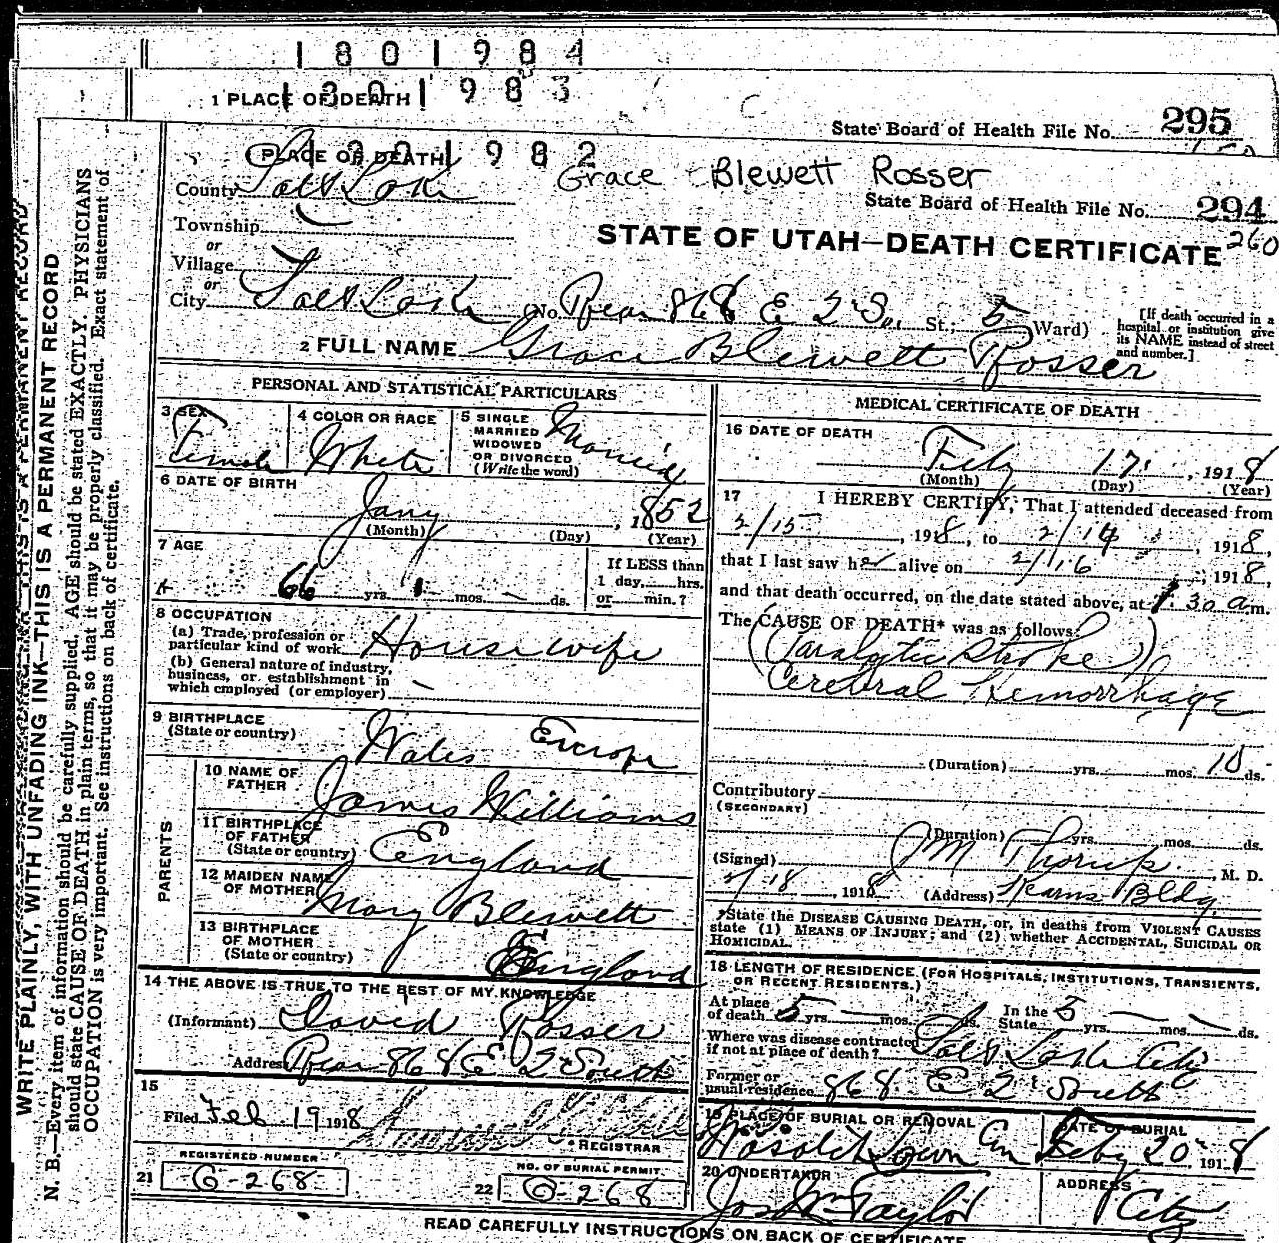 1801984
1 PLACE OF DEATH 1801983
State Board of Health File No. 295
PLACE OF DEATH 1801982
County Salt Lake
Grace Blewett Rosser
State Board of Health File No. 294
260
Township
or
Village
or
City Salt Lake
STATE OF UTAH—DEATH CERTIFICATE
(No. Rear 868 E 2 So. St.; 5 Ward)
[If death occurred in a hospital or institution give its NAME instead of street and number.]
2 FULL NAME Grace Blewett Rosser
WRITE PLAINLY, WITH UNFADING INK—THIS IS A PERMANENT RECORD
N. B.—Every item of information should be carefully supplied. AGE should be stated EXACTLY. PHYSICIANS
should state CAUSE OF DEATH in plain terms, so that it may be properly classified. Exact statement of
OCCUPATION is very important. See instructions on back of certificate.
PERSONAL AND STATISTICAL PARTICULARS
3 SEX
Female
4 COLOR OR RACE
White
5 SINGLE
MARRIED
WIDOWED
OR DIVORCED
(Write the word)
Married
6 DATE OF BIRTH
Jany , 1852
(Month) (Day) (Year)
7 AGE
66 yrs. 1 mos. — ds.
If LESS than
1 day, hrs.
or min.?
8 OCCUPATION
(a) Trade, profession or
particular kind of work Housewife
(b) General nature of industry,
business, or establishment in
which employed (or employer) —
9 BIRTHPLACE
(State or country)
Wales Europe
PARENTS
10 NAME OF
FATHER
James Williams
11 BIRTHPLACE
OF FATHER
(State or country)
England
12 MAIDEN NAME
OF MOTHER
Mary Blewett
13 BIRTHPLACE
OF MOTHER
(State or country)
England
14 THE ABOVE IS TRUE TO THE BEST OF MY KNOWLEDGE
(Informant) David Rosser
Address Rear 868 E 2 South
15
Filed Feb 19 1918
REGISTRAR
REGISTERED NUMBER
21 G-268
NO. OF BURIAL PERMIT
22 G-268
MEDICAL CERTIFICATE OF DEATH
16 DATE OF DEATH
Feby 17 , 1918
(Month) (Day) (Year)
17 I HEREBY CERTIFY, That I attended deceased from
2/15 , 1918, to 2/16 , 1918,
that I last saw her alive on 2/16 , 1918,
and that death occurred, on the date stated above, at 1.30 a.m.
The CAUSE OF DEATH* was as follows:
(Paralytic Stroke)
Cerebral Hemorrhage
(Duration) yrs. mos. 10 ds.
Contributory
(SECONDARY)
(Duration) yrs. mos. ds.
(Signed) J M Thorup , M. D.
2/18 , 1918 (Address) Kearns Bldg.
*State the DISEASE CAUSING DEATH, or, in deaths from VIOLENT CAUSES
state (1) MEANS OF INJURY; and (2) whether ACCIDENTAL, SUICIDAL OR
HOMICIDAL.
18 LENGTH OF RESIDENCE (FOR HOSPITALS, INSTITUTIONS, TRANSIENTS,
OR RECENT RESIDENTS.)
At place
of death 5 yrs. — mos. ds. In the
State 5 yrs. — mos. — ds.
Where was disease contracted
if not at place of death? Salt Lake City
Former or
usual residence 868 E 2 South
19 PLACE OF BURIAL OR REMOVAL
Wasatch Lawn Cem
DATE OF BURIAL
Feby 20 , 1918
20 UNDERTAKER
Jos Wm Taylor
ADDRESS
City
READ CAREFULLY INSTRUCTIONS ON BACK OF CERTIFICATE